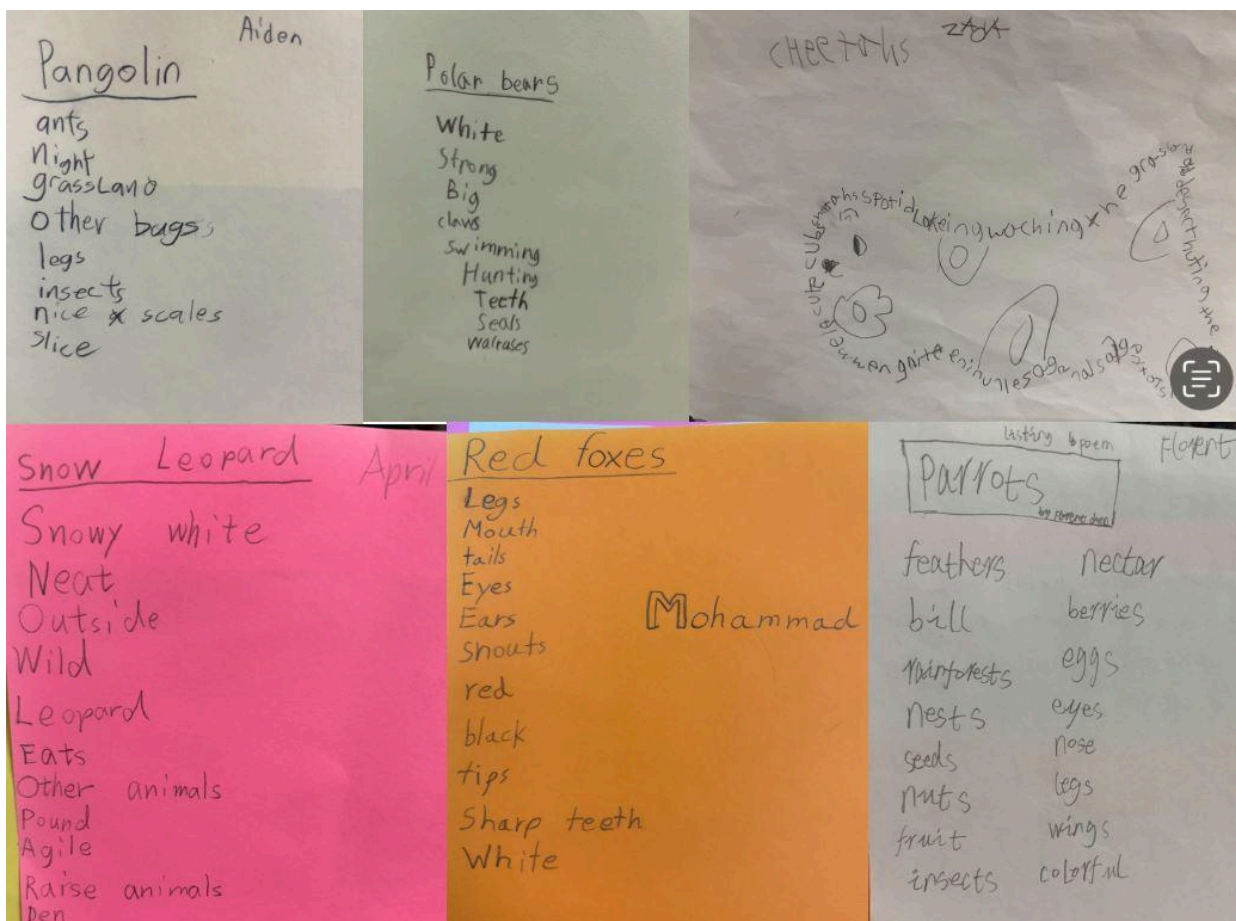 Aiden
Pangolin
ants
night
grassLand
other bugs
legs
insects
nice scales
slice
Polar bears
White
Strong
Big
claws
swimming
Hunting
Teeth
Seals
walrases
CHEETAHS
cute cubs
spotid
Lokeing woching the grass
huting the
Snow Leopard
April
Snowy white
Neat
Outside
Wild
Leopard
Eats
Other animals
Pound
Agile
Raise animals
Den
Red foxes
Legs
Mouth
tails
Eyes
Ears
Mohammad
snouts
red
black
tips
Sharp teeth
White
listing poem
Florent
Parrots
feathers
bill
rainforests
nests
seeds
nuts
fruit
insects
nectar
berries
eggs
eyes
nose
legs
wings
colorful